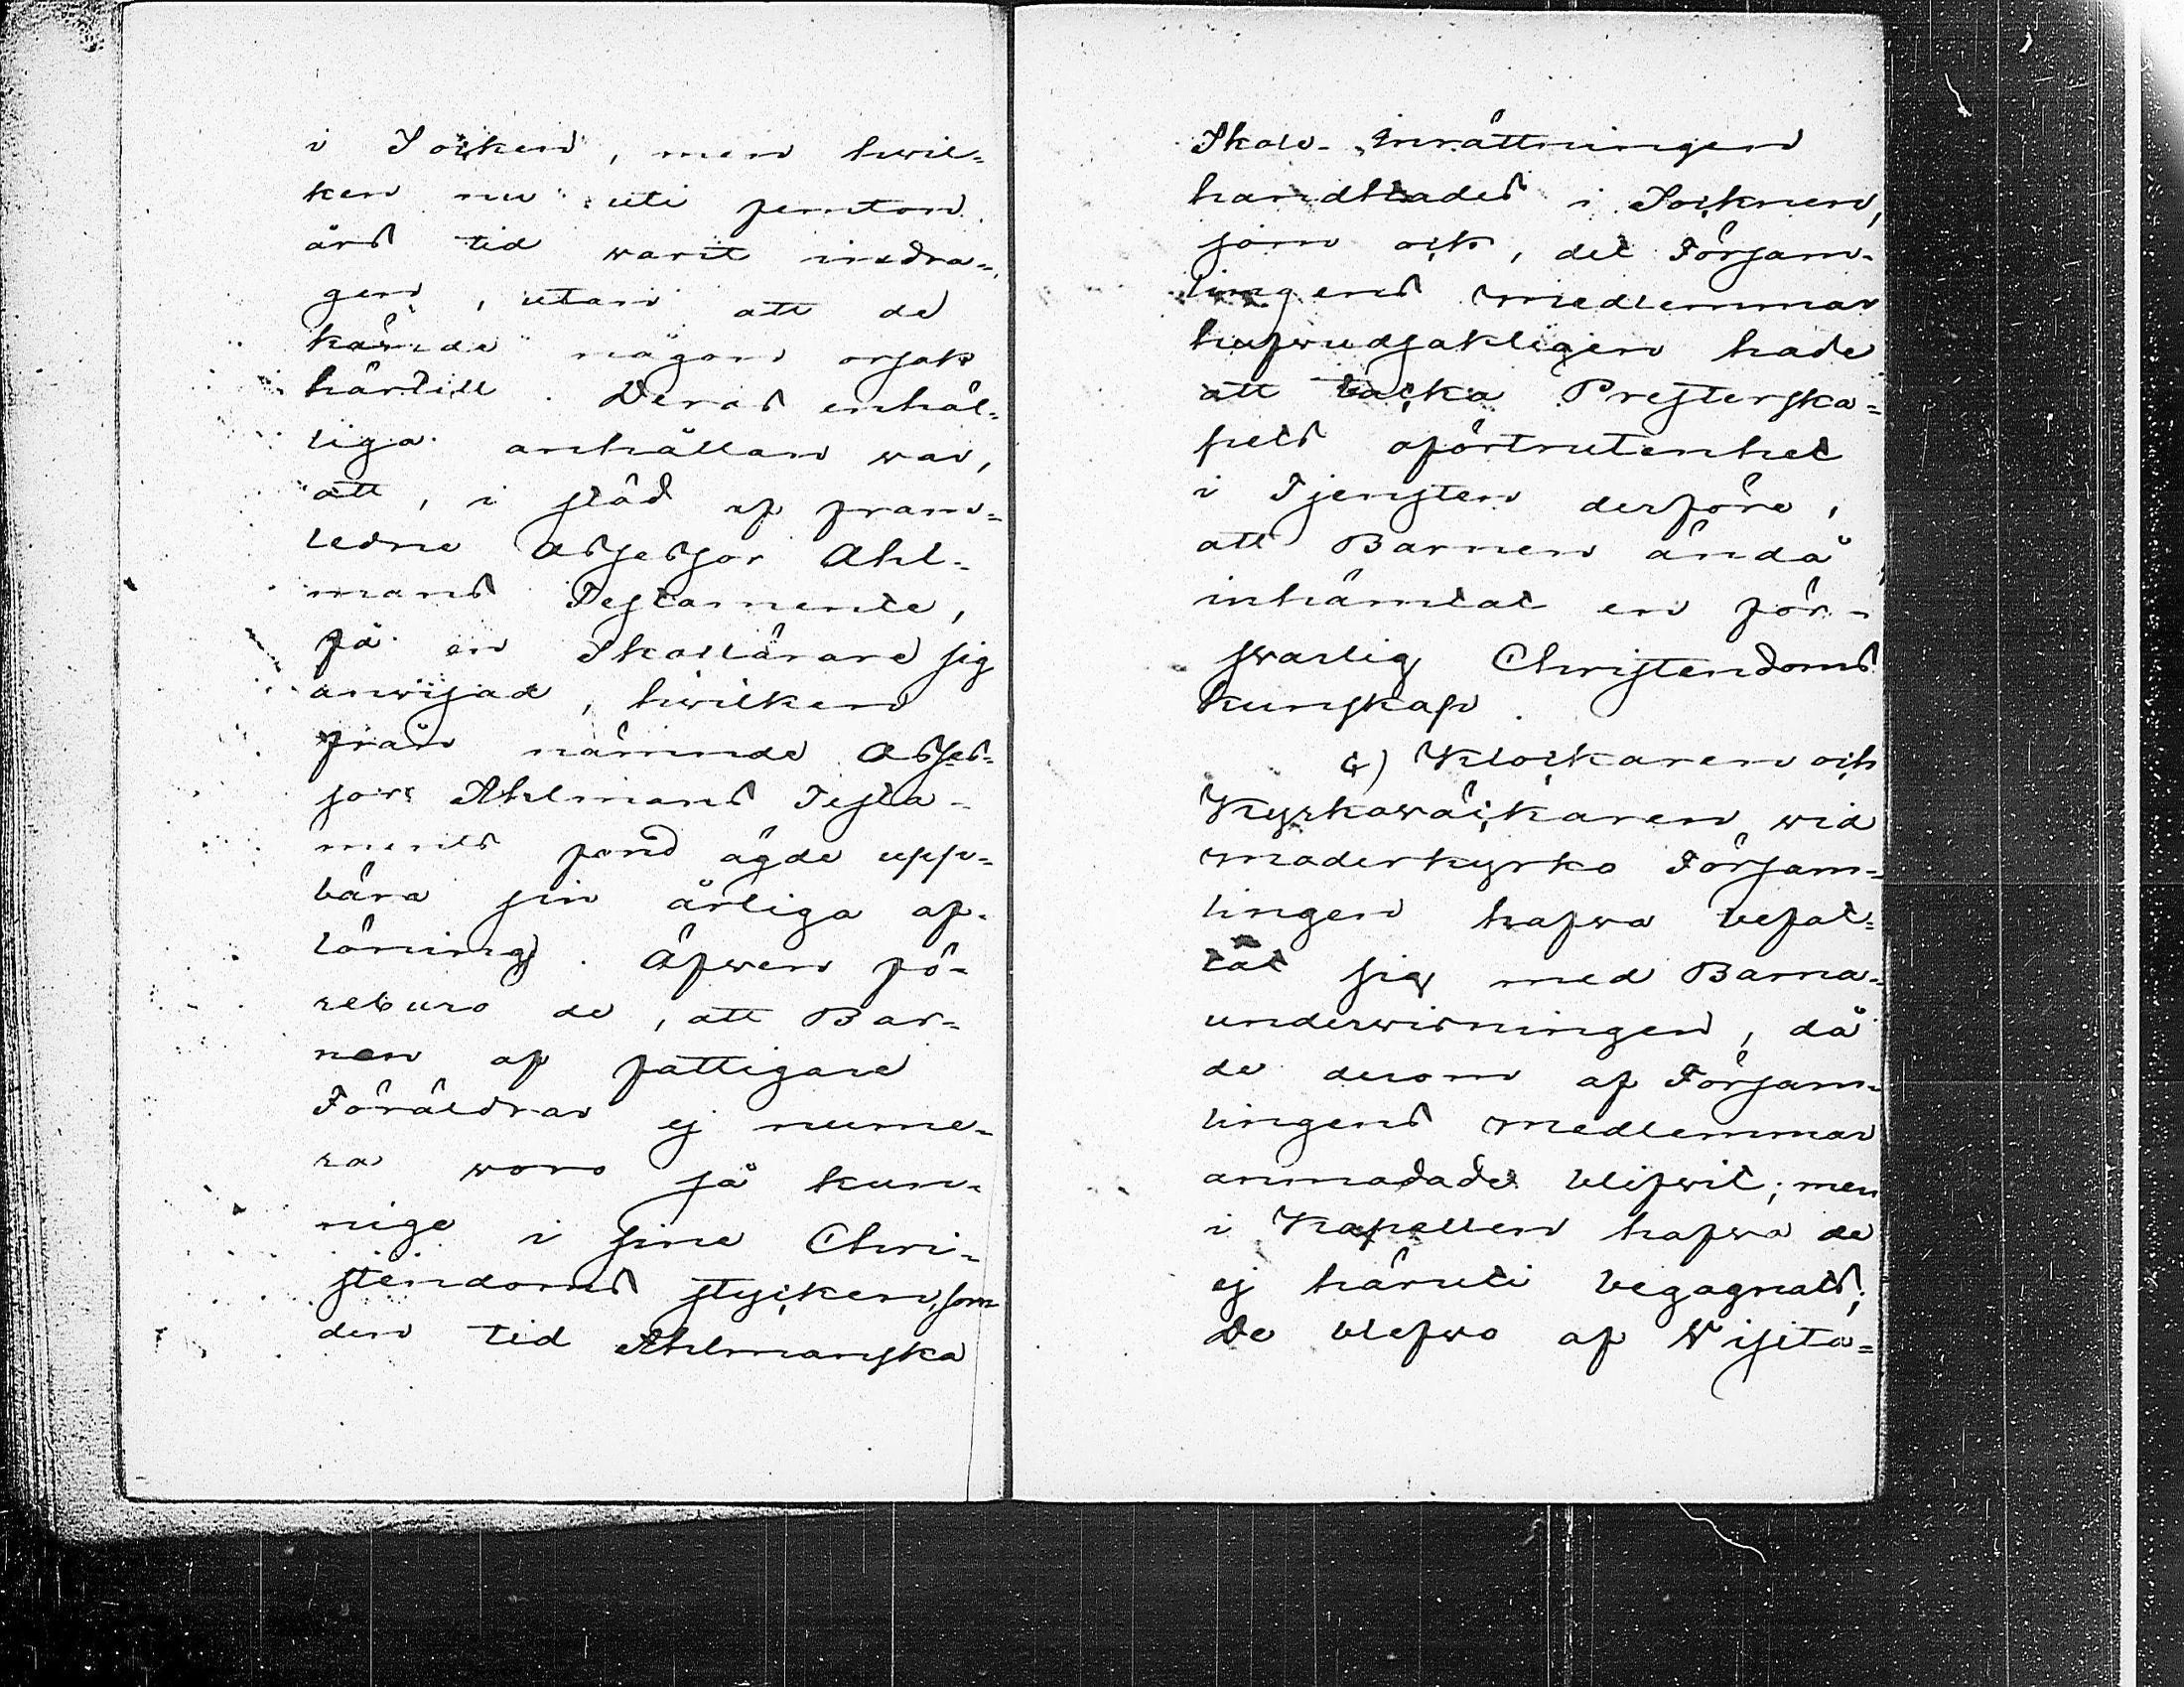 i Socken, men hwil=
ken nu uti femton
års tid warit indra=
gen, utan att de
kände någon orsak
härtill. Deras enhäl=
liga anhållan war,
att, i stöd af fram=
ledne Assessor Ahl=
mans Testamente,
få en Skollärare sig
anwisad, hwilken
från nämnde Asses=
sors Ahlmans Testa=
ments fond ägde upp=
bära sin årliga af=
löning. Äfwen fö=
reburo de, att Bar=
nen af fattigare
Föräldrar ej nume=
ra woro så kun=
nige i sine Chri=
stendoms stycken, som
den tid Ahlmanska
Skole-Inrättningen
handhades i Socknen,
som ock, det Försam=
lingens medlemmar
hufwudsakligen hade
att tacka Presterska=
pets oförtrutenhet
i Tjensten derföre,
att Barnen ändå
inhämtat en för=
swarlig Christendoms
kunskap.
4) Klockaren och
Kyrkowäcktaren wid
moderkyrko Försam=
lingen hafwa befat=
tat sig med Barna=
underwisningen, då
de derom af Försam=
lingens medlemmar
anmodade blifwit; men
i Kapellen hafwa de
ej häruti begagnats;
De blefwo af Visita=